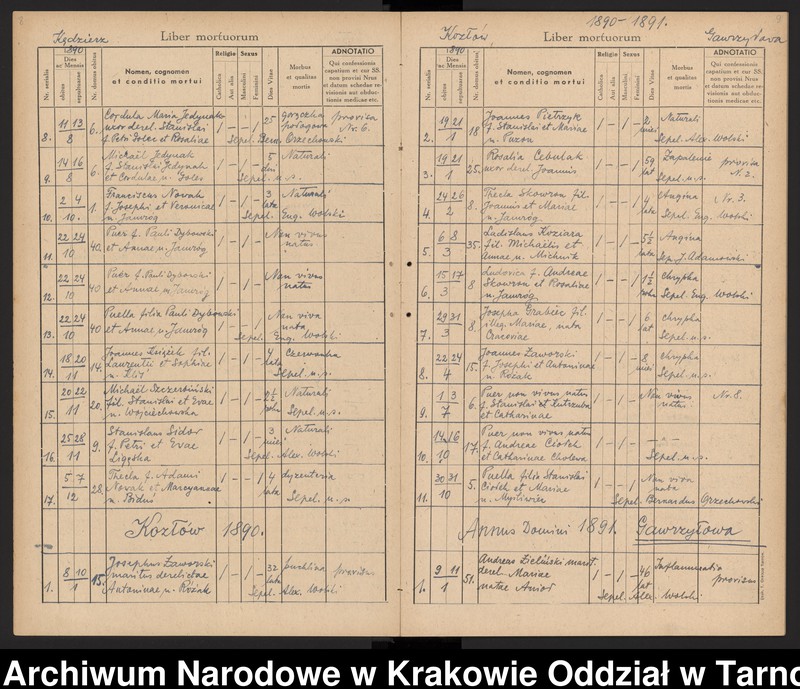 Kędzierz
Liber mortuorum
Nr. serialis
1890
Dies ac Mensis
obitus
sepulturae
Nr. domus obitus
Nomen, cognomen
et conditio mortui
Religio
Catholica
Aut alia
Sexus
Masculini
Feminini
Dies Vitae
Morbus
et qualitas
mortis
ADNOTATIO
Qui confessionis
capatium et cur SS.
non provisi Nrus
et datum schedae revisionis
aut obductionis
medicae etc.
8. 11 13 8 6. Cordula Maria Jedynak
uxor derel. Stanislai
f. Petri Golec et Rosaliae
/ – – / 25
Sepel. Bern. Orzechowski
provisa
Nr. 6.
9. 14 16 8 6. Michael Jedynak
f. Stanislai Jedynak
et Cordulae n. Golec
/ – / – 5 dni Naturali
Sepel. u. s.
10. 2 4 10. 1. Franciscus Novak
f. Josephi et Veronicae
n. Jamróg
/ – / – 3 lata Naturali
Sepel. Eug. Wolski
11. 22 24 10 40. Puer f. Pauli Dybowski
et Annae n. Jamróg
/ – / – Non vivus
natus
12. 22 24 10 40 Puer f. Pauli Dybowski
et Annae n. Jamróg
/ – / – Non vivus
natus
13. 22 24 10 40 Puella filia Pauli Dybowski
et Annae n. Jamróg
/ – – / Non viva
nata
Sepel. Eug. Wolski
14. 18 20 11 14. Joannes filius
Laurentii et Sophiae
/ – / – 4 lata Czerwonka
Sepel. u. s.
15. 20 22 11 20. Michaël Szczerbiński
fil. Stanislai et Evae
n. Wojciechowska
/ – / – 2½ roku Naturali
Sepel. u. s.
16. 25 28 11 9. Stanislaus Sidor
f. Petri et Evae
/ – / – 3 Naturali
Sepel. Alex. Wolski
17. 5 7 12 28. Thecla f. Adami
Novak et Marcyannae
/ – – / 4 lata dyzenteria
Sepel. u. s.
Kozłów 1890.
1. 8 10 1 15. Josephus Zaworski
maritus derelictae
Antoninae n. Różak
/ – / – 32 lata puchlina provisus
Sepel. Alex. Wolski
1890–1891.
Kozłów
Liber mortuorum
Gawrzyłowa
9
Nr. serialis
1890
Dies ac Mensis
obitus
sepulturae
Nr. domus obitus
Nomen, cognomen
et conditio mortui
Religio
Catholica
Aut alia
Sexus
Masculini
Feminini
Dies Vitae
Morbus
et qualitas
mortis
ADNOTATIO
Qui confessionis
capatium et cur SS.
non provisi Nrus
et datum schedae revisionis
aut obductionis
medicae etc.
2. 19 21 1 18 Joannes Pietrzyk
f. Stanislai et Mariae
n. Puzon
/ – / – 2 Naturali
Sepel. Alex. Wolski
3. 19 21 1 25. Rosalia Cebulak
uxor derel. Joannis
/ – – / 59 lat Zapalenie provisa
Sepel. u. s. N. 2.
4. 24 26 2 8. Thecla Skowron fil.
Joannis et Mariae
n. Jamróg
/ – – / 4 lata Angina Nr. 3.
Sepel. Eug. Wolski
5. 6 8 3 35. Ladislaus Koziara
fil. Michaëlis et
Annae n. Michnik
/ – / – 5½ Angina
Sep. J. Adamowski
6. 15 17 3 8. Ludovica f. Andreae
Skowron et Rosaliae
n. Jamróg
/ – – / 1½ roku chrypka
Sepel. Eug. Wolski
7. 29 31 3 8. Josepha Grabiec fil.
illeg. Mariae, nata
Cracoviae
/ – – / 6 lat chrypka
Sepel. u. s.
8. 22 24 4 15. Joannes Zaworski
f. Josephi et Antoninae
n. Różak
/ – / – 8 chrypka
Sepel. u. s.
9. 1 3 7 6. Puer non vivus natus
f. Stanislai et
et Catharinae
/ – / – Non vivus
natus Nr. 8.
10. 14 16 10 17. Puer non vivus natus
f. Andreae Ciołek
et Catharinae Cholewa
/ – / – – „ –
Sepel. u. s.
11. 30 31 10 5. Puella filia Stanislai
Ciołek et Mariae
n. Myśliwiec
/ – – / Non viva
nata
Sepel. Bernardus Orzechowski
Annus Domini 1891. Gawrzyłowa
1. 9 11 1 51. Andreas Zieliński marit.
derel. Mariae
natae Anioł
/ – / – 46 lat Inflammatio
provisus
Sepel. Alex. Wolski
Archiwum Narodowe w Krakowie Oddział w Tarno